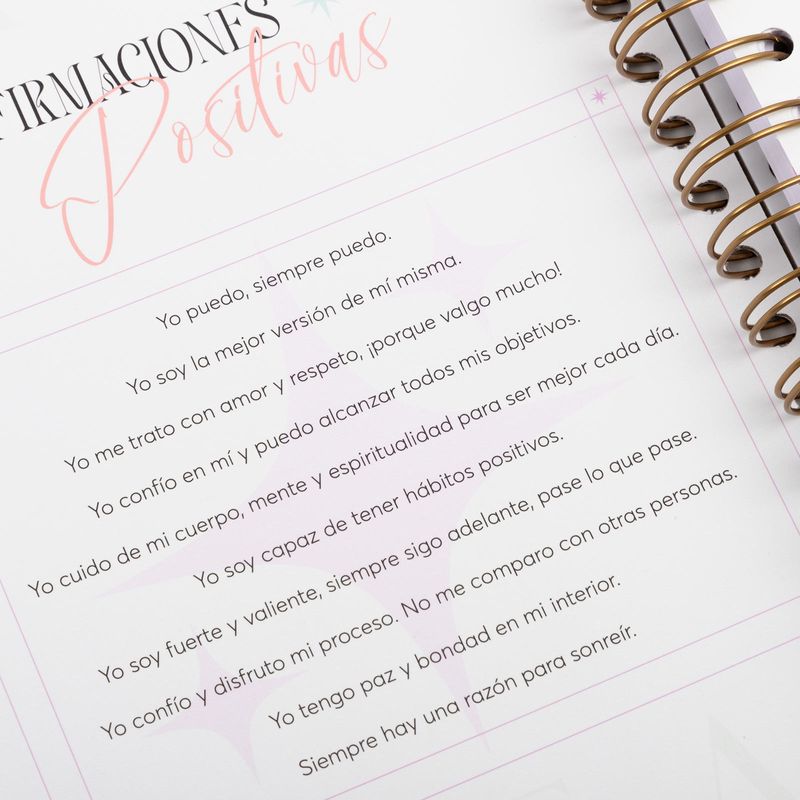 FIRMACIONES
Positivas
Yo puedo, siempre puedo.
Yo soy la mejor versión de mí misma.
Yo me trato con amor y respeto, ¡porque valgo mucho!
Yo confío en mí y puedo alcanzar todos mis objetivos.
Yo cuido de mi cuerpo, mente y espiritualidad para ser mejor cada día.
Yo soy capaz de tener hábitos positivos.
Yo soy fuerte y valiente, siempre sigo adelante, pase lo que pase.
Yo confío y disfruto mi proceso. No me comparo con otras personas.
Yo tengo paz y bondad en mi interior.
Siempre hay una razón para sonreír.